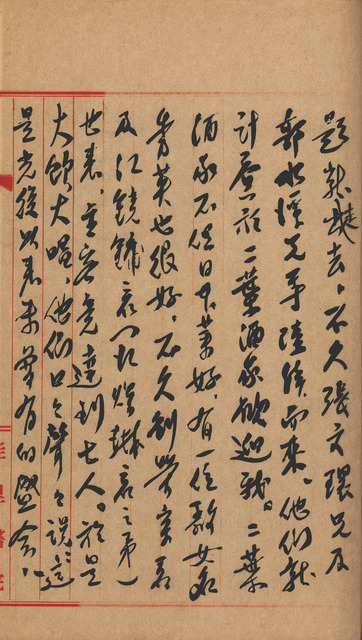 題就談去。不久張文環兄及
郭水潭兄等陸續而來。他們就
計劃於二葉酒家歡迎我。二葉
酒家不但日本菜好,有一位歌女名
秀英也很好,不久
及江 君(江燦琳君之弟)
也來,主客竟達到七人。於是
大飲大唱。他們口口聲聲說:這
是光復以來未曾有的盛會、